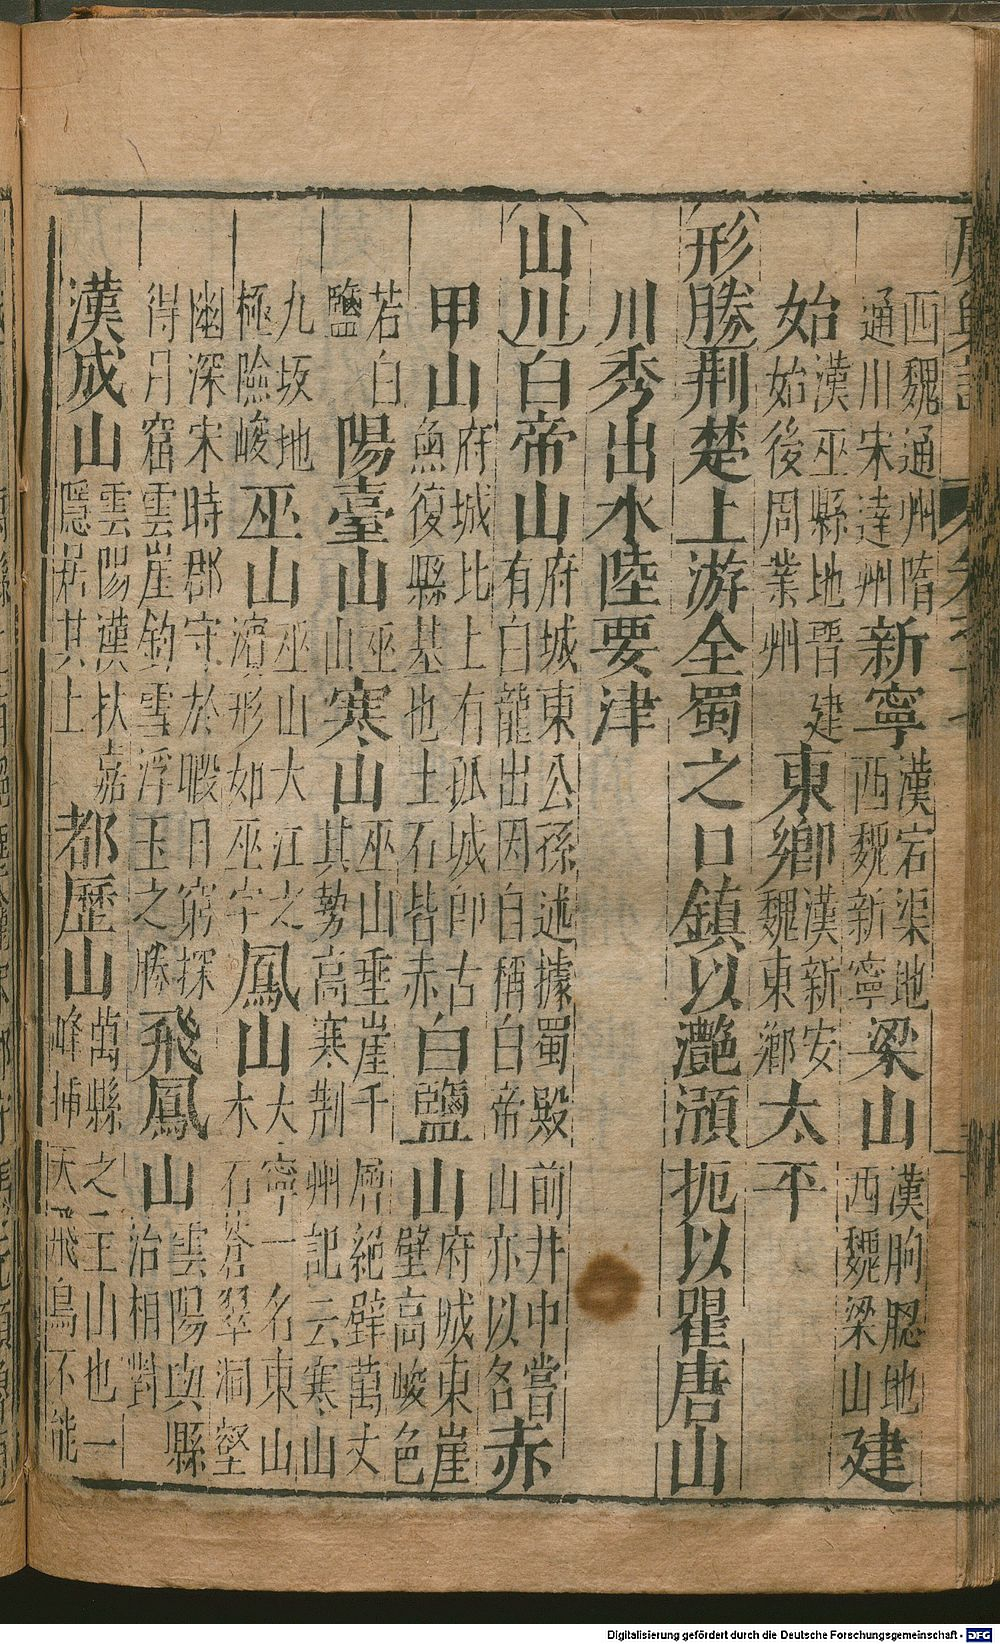 廣輿記
西魏通州隋通川宋達州新寧漢宕渠地西魏新寧梁山漢朐䏰地西魏梁山建
始漢巫縣地晉建始後周業州東鄉漢新安魏東鄉太平
形勝荆楚上游全蜀之口鎮以灔澦扼以瞿唐山
川秀出水陸要津
山川白帝山府城東公孫述據蜀殿前井中嘗有白龍出因自稱白帝山亦以名赤
甲山府城北上有孤城即古魚復縣基也土石皆赤白鹽山府城東崖壁高峻色
若白鹽陽臺山巫山寒山巫山垂崖千層絕壁萬丈其勢高寒荆州記云寒山
九坂地極險峻巫山巫山大江之濵形如巫字鳳山大寧一名東山木石蒼翠洞壑
幽深宋時郡守於暇日窮探得月窟雲崖釣雪浮玉之勝飛鳳山雲陽與縣治相對
漢成山雲陽漢扶嘉隱居其上都歷山萬縣之主山也一峰揷天飛鳥不能
Digitalisierung gefördert durch die Deutsche Forschungsgemeinschaft - DFG